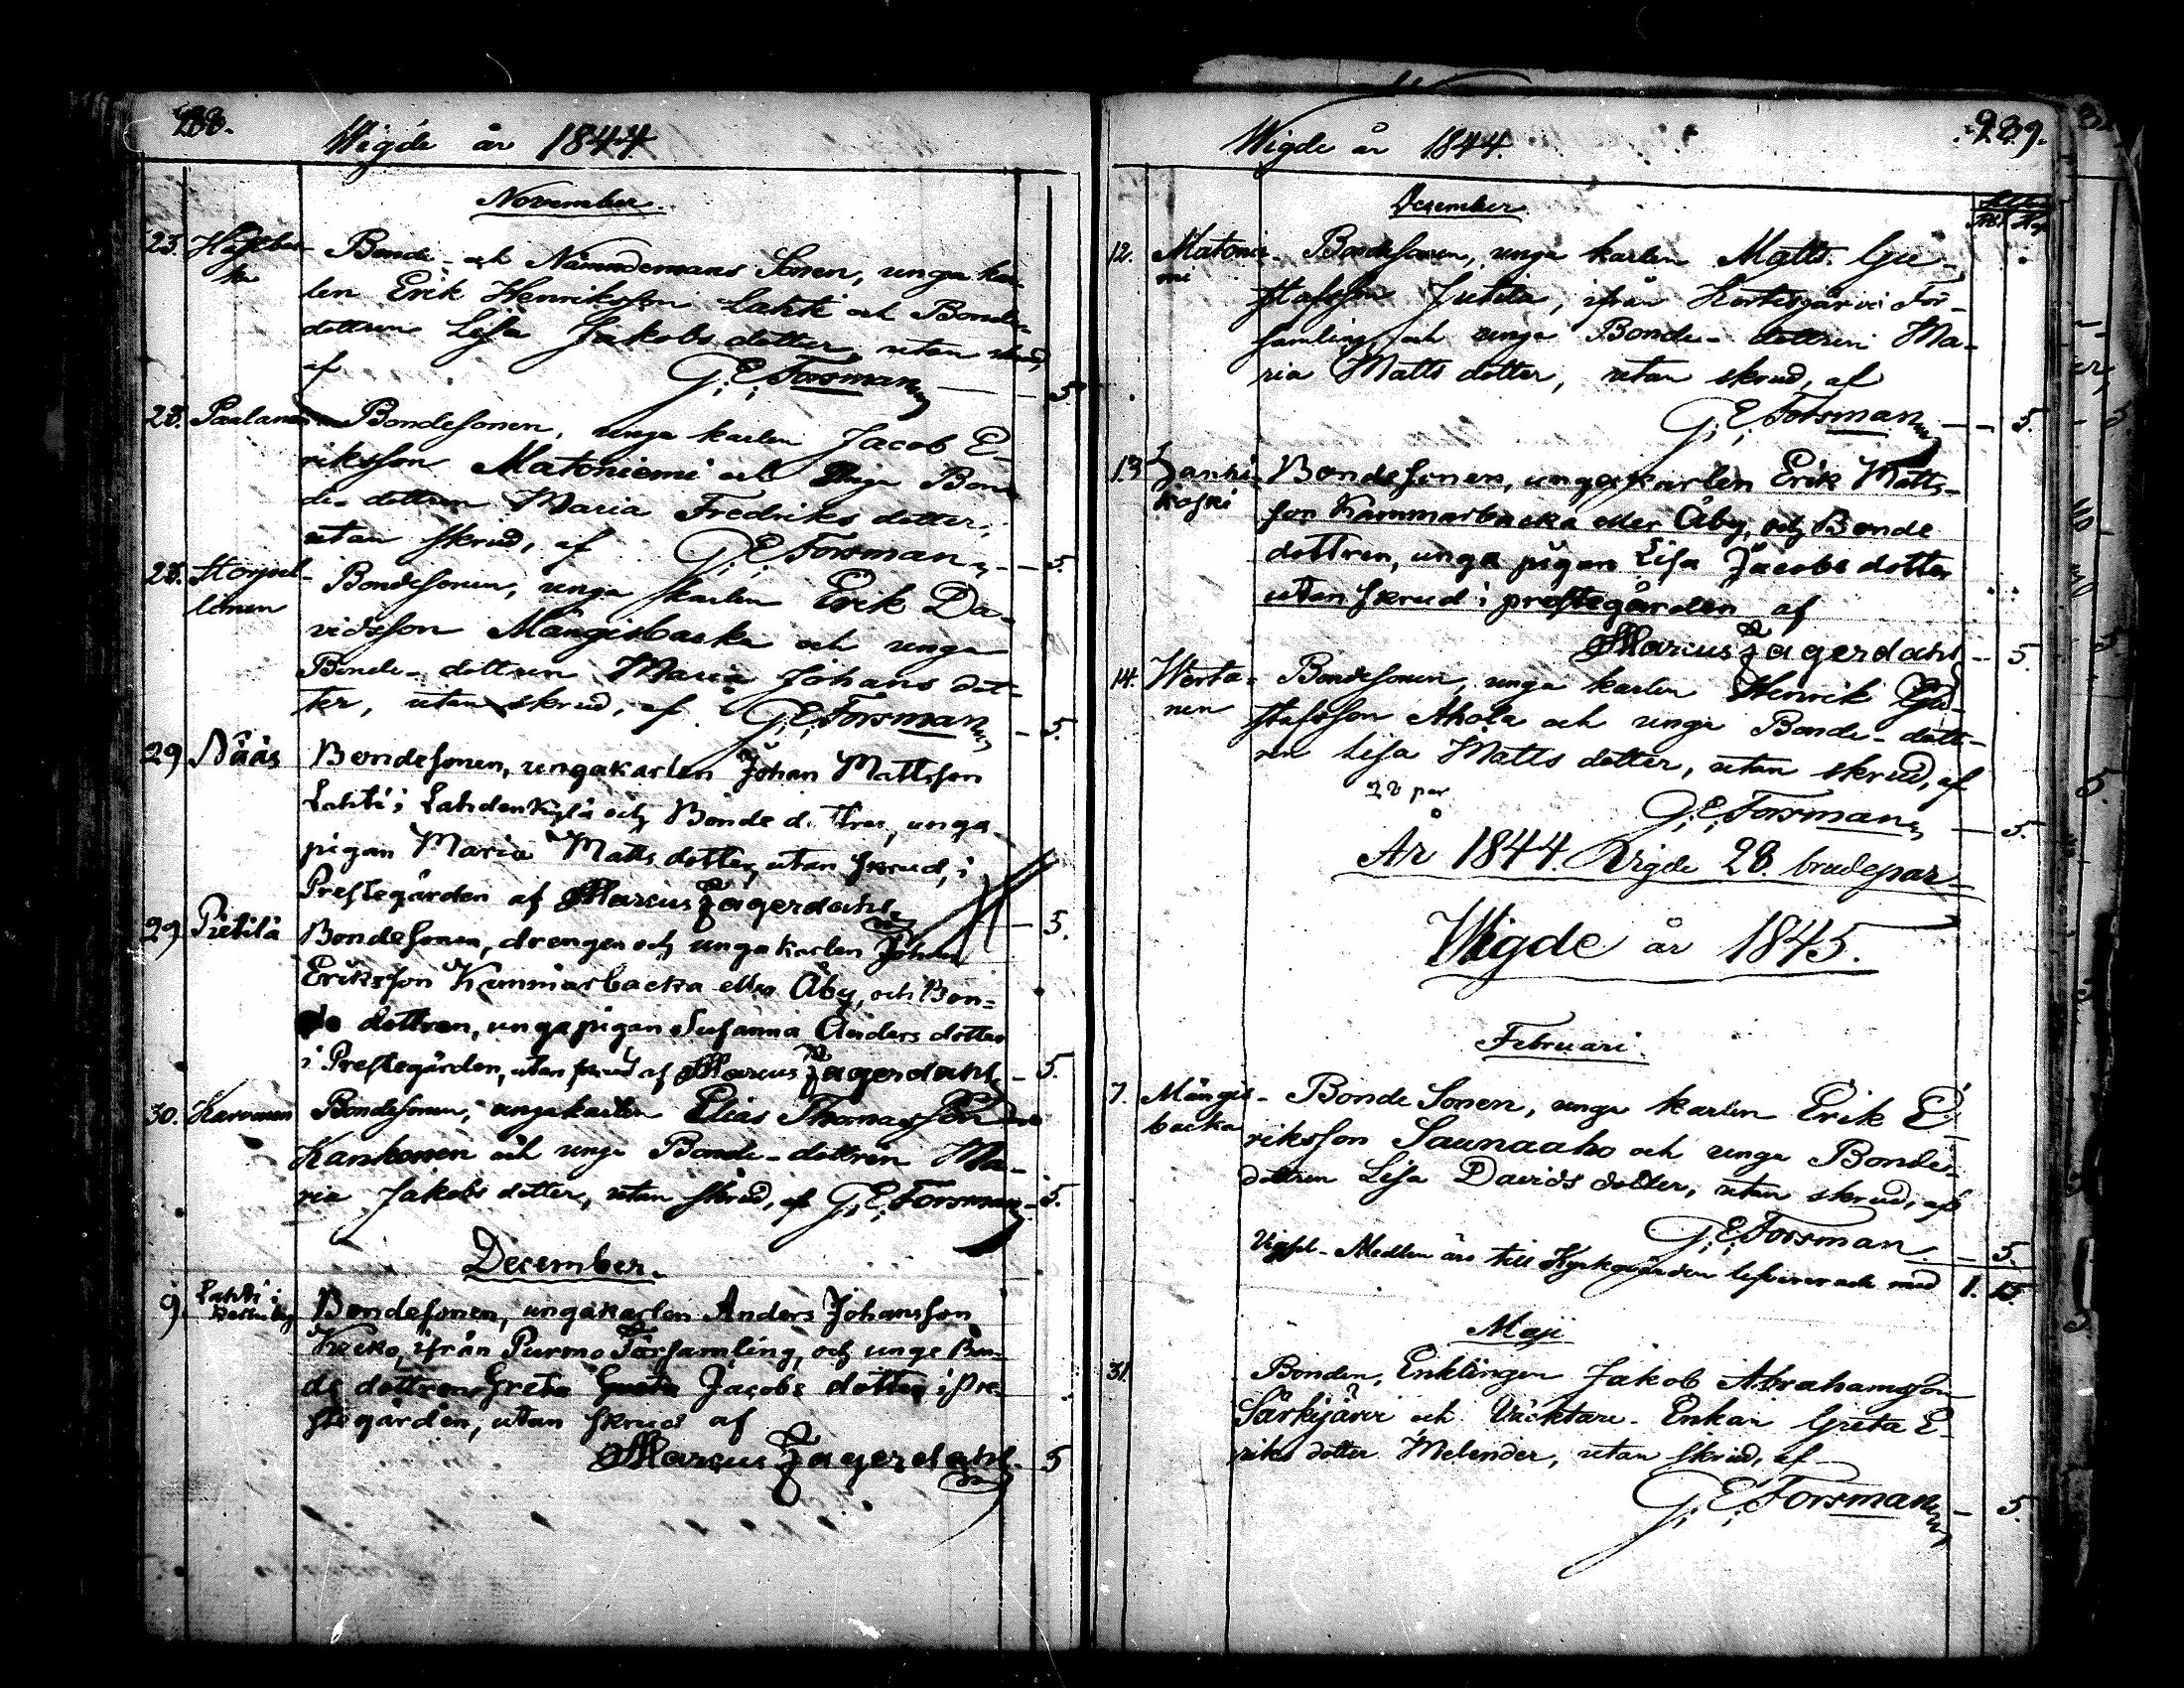 Wigde år 1844
November.
23. Bonde- och Nämndemans Sonen, unga kar-
len Erik Henriksson Lahti och Bonde-
dottren Lisa Jakobs dotter, utan skrud,
af G. E. Forsman — 5.
28. Bondesonen, unga karlen Jacob E-
riksson Matoniemi och Bon
de- dottren Maria Fredriks dotter,
utan skrud, af G. E. Forsman — 5.
28. Bondesonen, unga karlen Erik Da-
vidsson Mångsbacka och unga
Bonde- dottren Maria Johans dot-
ter, utan skrud, af G. E. Forsman — 5.
29 Nääs Bondesonen, ungakarlen Johan Mattsson
Lahti i Lahdenkylä och Bonde d. unga
pigan Maria Matts dotter, utan skrud, i
Prestegården af Marcus Jagerdahl — 5.
29 Pietilä Bondesonen, drengen och ungakarlen Johan
Eriksson Kammarbacka eller Åby, och Bon=
de dottren, unga pigan Susanna Anders dotter
i Prestegården, utan skrud af Marcus Jagerdahl — 5.
30. Karvonen Bondesonen, ungakarlen Elias Thomasson
Kankonen och unga Bonde- dottren Ma-
ria Jakobs dotter, utan skrud, af G. E. Forsman — 5.
December.
9. Lahti i Bondesonen, ungakarlen Anders Johansson
Kecko, ifrån Purmo Församling, och unge Bon-
de dottren Greta Jacobs dotter i Pre-
stegården, utan skrud af
Marcus Jagerdahl. 5
239.
Wigde år 1844.
December
12. Matonie- Bondesonen, unga karlen Matts Gu-
mi stafsson Jutila, ifrån Kortesjärvi För-
samling, och unga Bonde- dottren Ma-
ria Matts dotter, utan skrud, af
G. E. Forsman — 5.
13 Janki- Bondesonen, ungakarlen Erik Matts-
koski son Kammarbacka eller Åby, och Bonde
dottren, unga pigan Lisa Jacobs dotter
utan skrud i prestegården af
Marcus Jagerdahl — 5.
14. Werta- Bondesonen, unga karlen Henrik Gu-
nen stafsson Ahola och unga Bonde- dott-
ren Lisa Matts dotter, utan skrud, af
28 par
G. E. Forsman — 5.
År 1844. Wigde 28. brudepar
Wigde år 1845.
Februari.
7. Mångs- Bonde Sonen, unga karlen Erik E-
backa riksson Saunaaho och unga Bonde-
dottren Lisa Davids dotter, utan skrud, af
G. E. Forsman — 5.
Medlen äro till Kyrkovärden lefvererade med 1. 15.
Maji
31. Bonden, Enklingen Jakob Abrahamsson
Särkijärvi och Väcktare- Enkan Greta E-
riks dotter Melender, utan skrud, af
G. E. Forsman — 5.